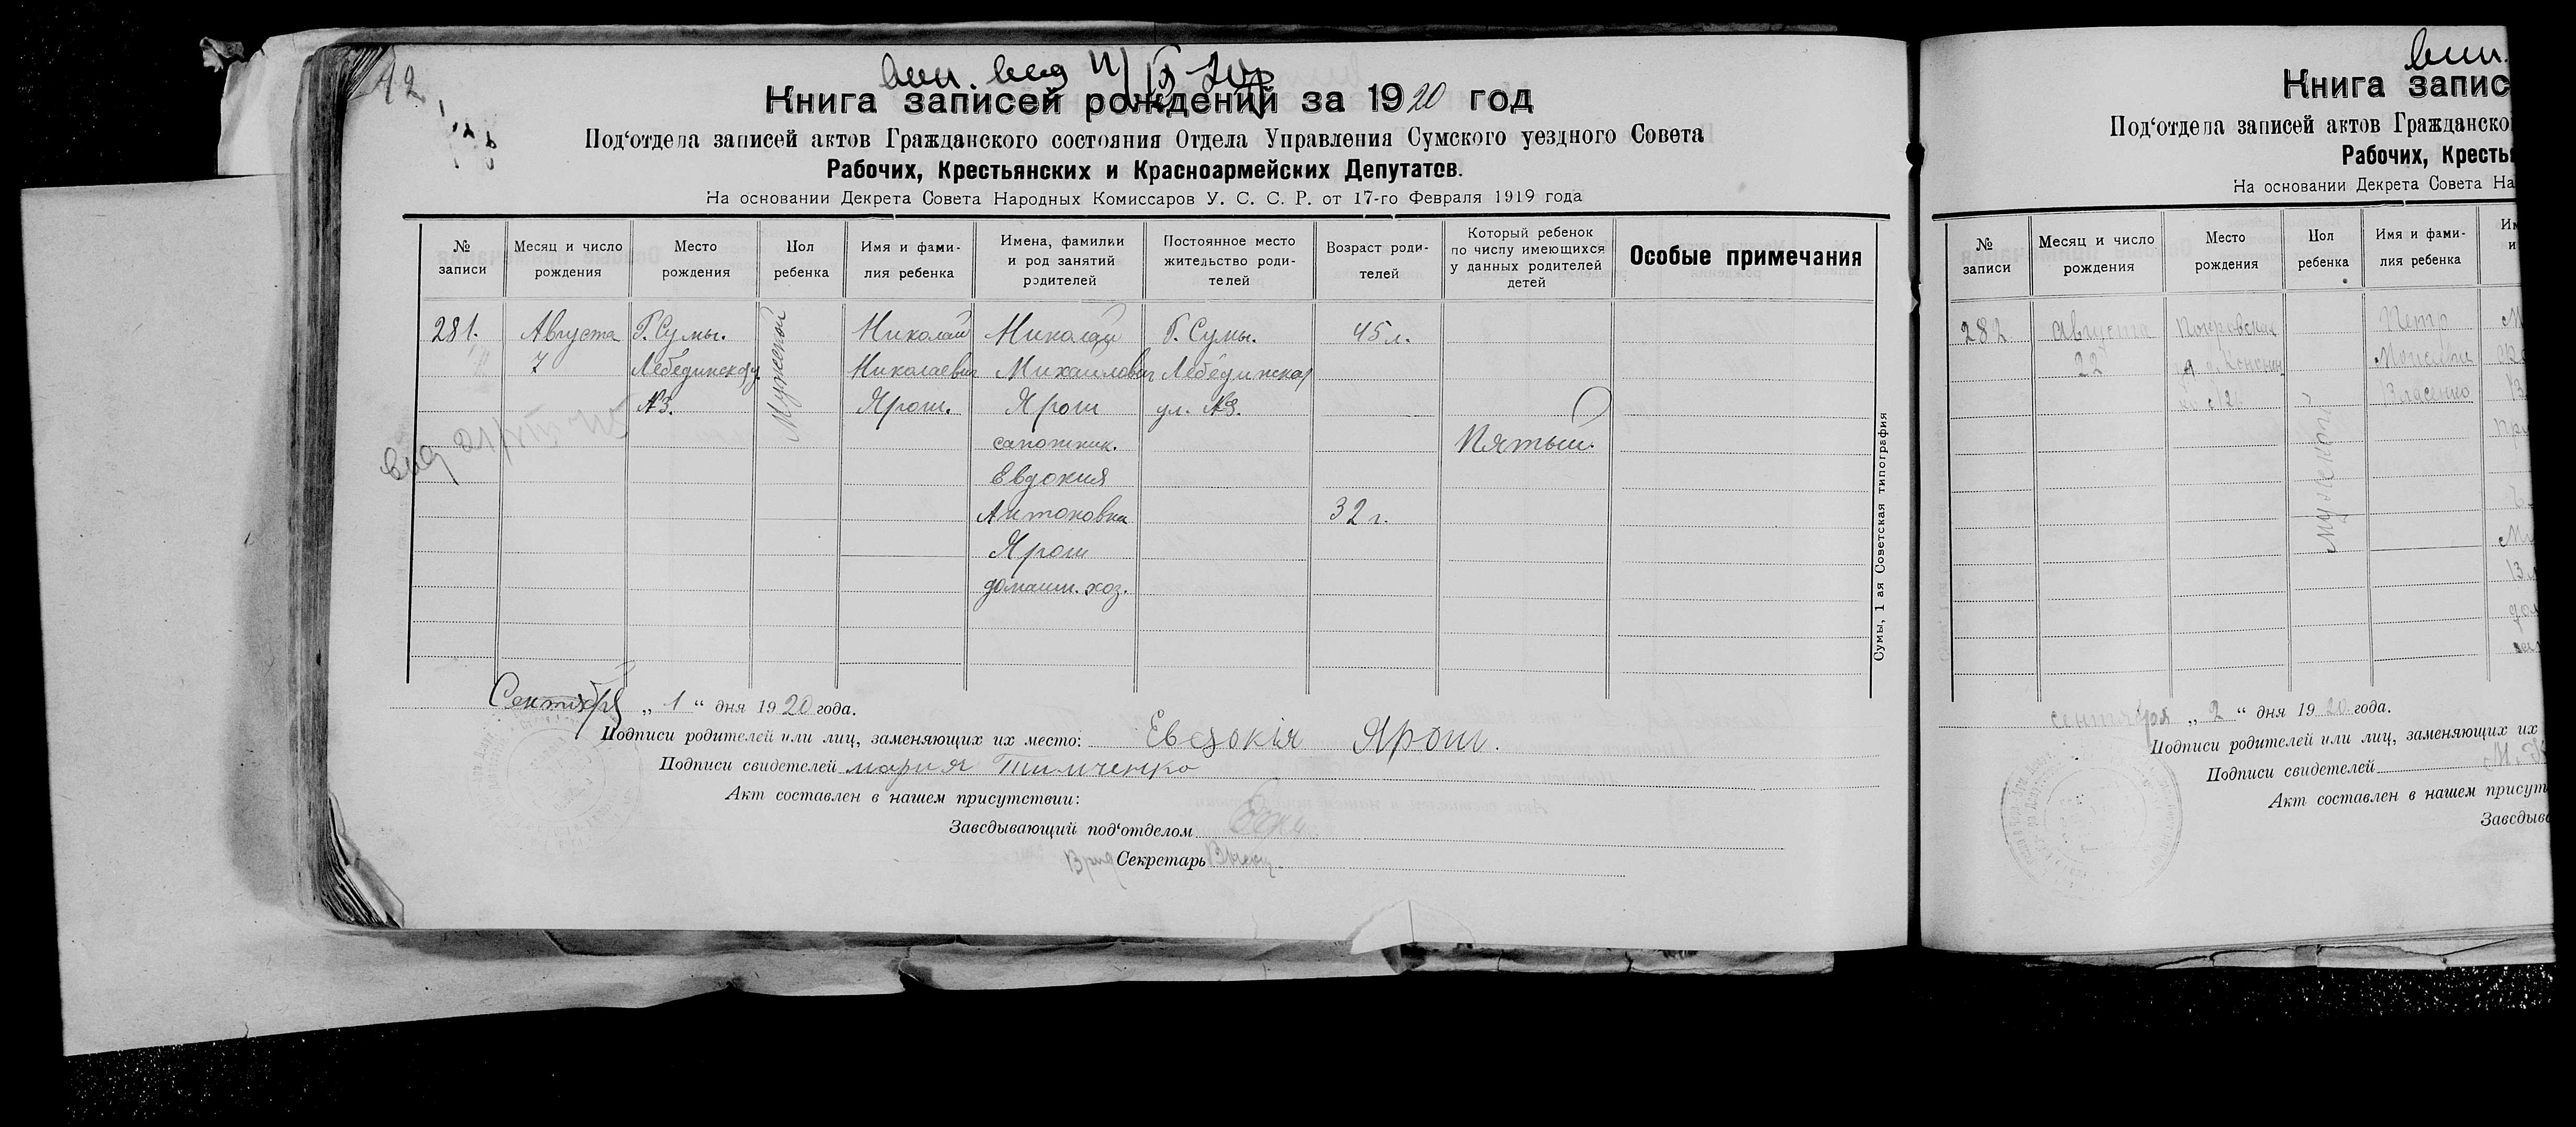 Книга записей рождений за 1920 год
Под‘отдела записей актов Гражданского состояния Отдела Управления Сумского уездного Совета
Рабочих, Крестьянских и Красноармейских Депутатов.
На основании Декрета Совета Народных Комиссаров У. С. С. Р. от 17-го Февраля 1919 года
№ записи
Месяц и число рождения
Место рождения
Пол ребенка
Имя и фамилия ребенка
Имена, фамилии и род занятий родителей
Постоянное место жительство родителей
Возраст родителей
Который ребенок по числу имеющихся у данных родителей детей
Особые примечания
281.
Августа
7
Г. Сумы.
Лебединская у.
№3.
Мужской
Николай
Николаевич
Ярош.
Николай
Михайлович
Ярош
сапожник.
Евдокия
Антоновна
Ярош
домашн. хоз.
Г. Сумы.
Лебединская
ул. №3.
45 л.
32 г.
Пятый.
Сумы, 1 ая Советская типография
Сентября „ 1 “ дня 1920 года.
Подписи родителей или лиц, заменяющих их место: Евдокія Ярош.
Подписи свидетелей мария Тимченко
Акт составлен в нашем присутствии:
Заведывающий под‘отделом
Врид Секретарь
Книга запис
Под‘отдела записей актов Гражданско
Рабочих, Кресть
На основании Декрета Совета На
№ записи
Месяц и число рождения
Место рождения
Пол ребенка
Имя и фамилия ребенка
282
Августа
22
Покровская
Мужской
Петр
Моисеевич
Власенко
сентября „ 2 “ дня 1920 года.
Подписи родителей или лиц, заменяющих их
Подписи свидетелей
Акт составлен в нашем присут
Заведыв